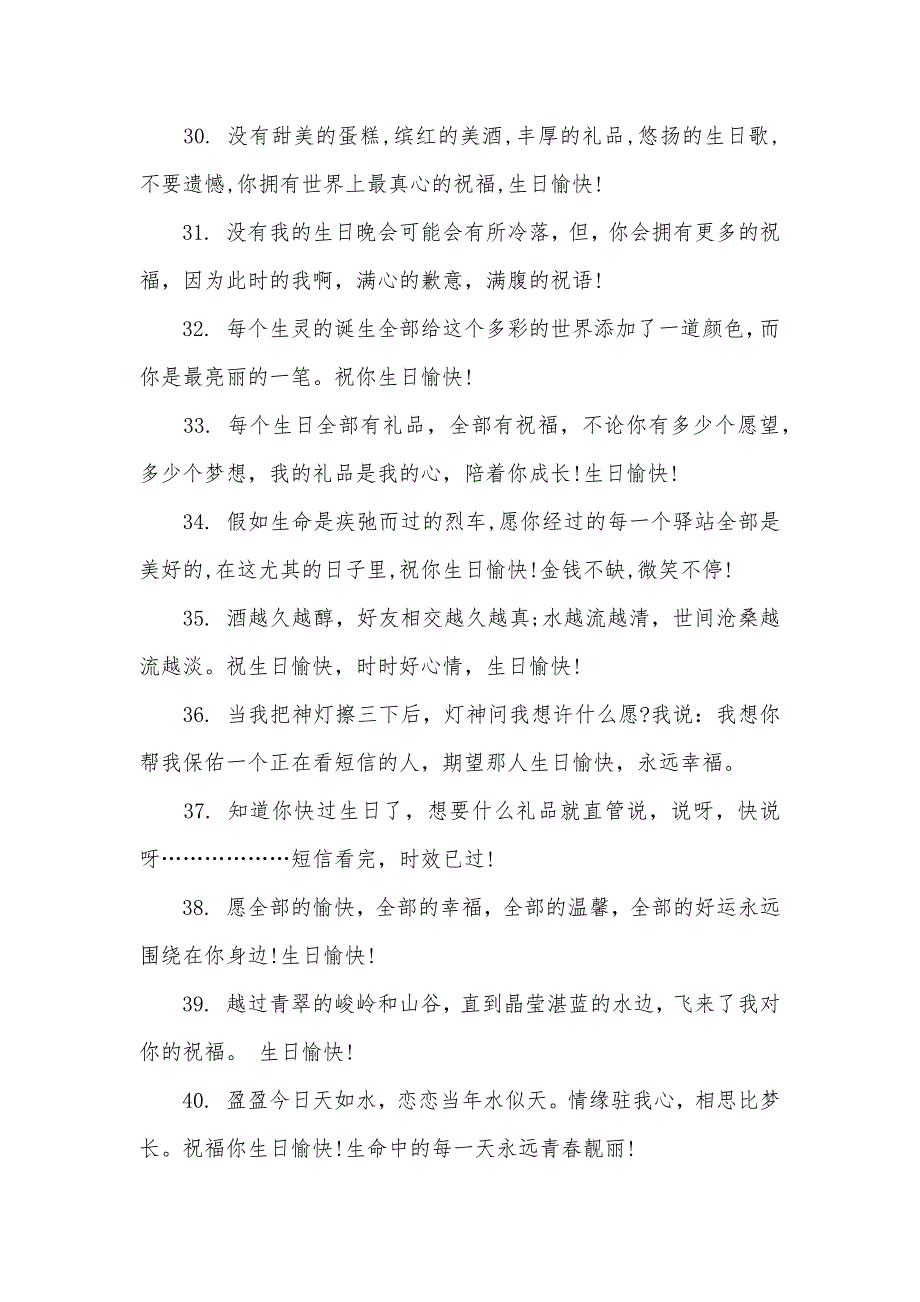 30. 没有甜美的蛋糕,缤红的美酒,丰厚的礼品,悠扬的生日歌,
不要遗憾,你拥有世界上最真心的祝福,生日愉快!
31. 没有我的生日晚会可能会有所冷落，但，你会拥有更多的祝
福，因为此时的我啊，满心的歉意，满腹的祝语!
32. 每个生灵的诞生全部给这个多彩的世界添加了一道颜色，而
你是最亮丽的一笔。祝你生日愉快!
33. 每个生日全部有礼品，全部有祝福，不论你有多少个愿望，
多少个梦想，我的礼品是我的心，陪着你成长!生日愉快!
34. 假如生命是疾弛而过的烈车,愿你经过的每一个驿站全部是
美好的,在这尤其的日子里,祝你生日愉快!金钱不缺,微笑不停!
35. 酒越久越醇，好友相交越久越真;水越流越清，世间沧桑越
流越淡。祝生日愉快，时时好心情，生日愉快!
36. 当我把神灯擦三下后，灯神问我想许什么愿?我说：我想你
帮我保佑一个正在看短信的人，期望那人生日愉快，永远幸福。
37. 知道你快过生日了，想要什么礼品就直管说，说呀，快说
呀………………短信看完，时效已过!
38. 愿全部的愉快，全部的幸福，全部的温馨，全部的好运永远
围绕在你身边!生日愉快!
39. 越过青翠的峻岭和山谷，直到晶莹湛蓝的水边，飞来了我对
你的祝福。 生日愉快!
40. 盈盈今日天如水，恋恋当年水似天。情缘驻我心，相思比梦
长。祝福你生日愉快!生命中的每一天永远青春靓丽!